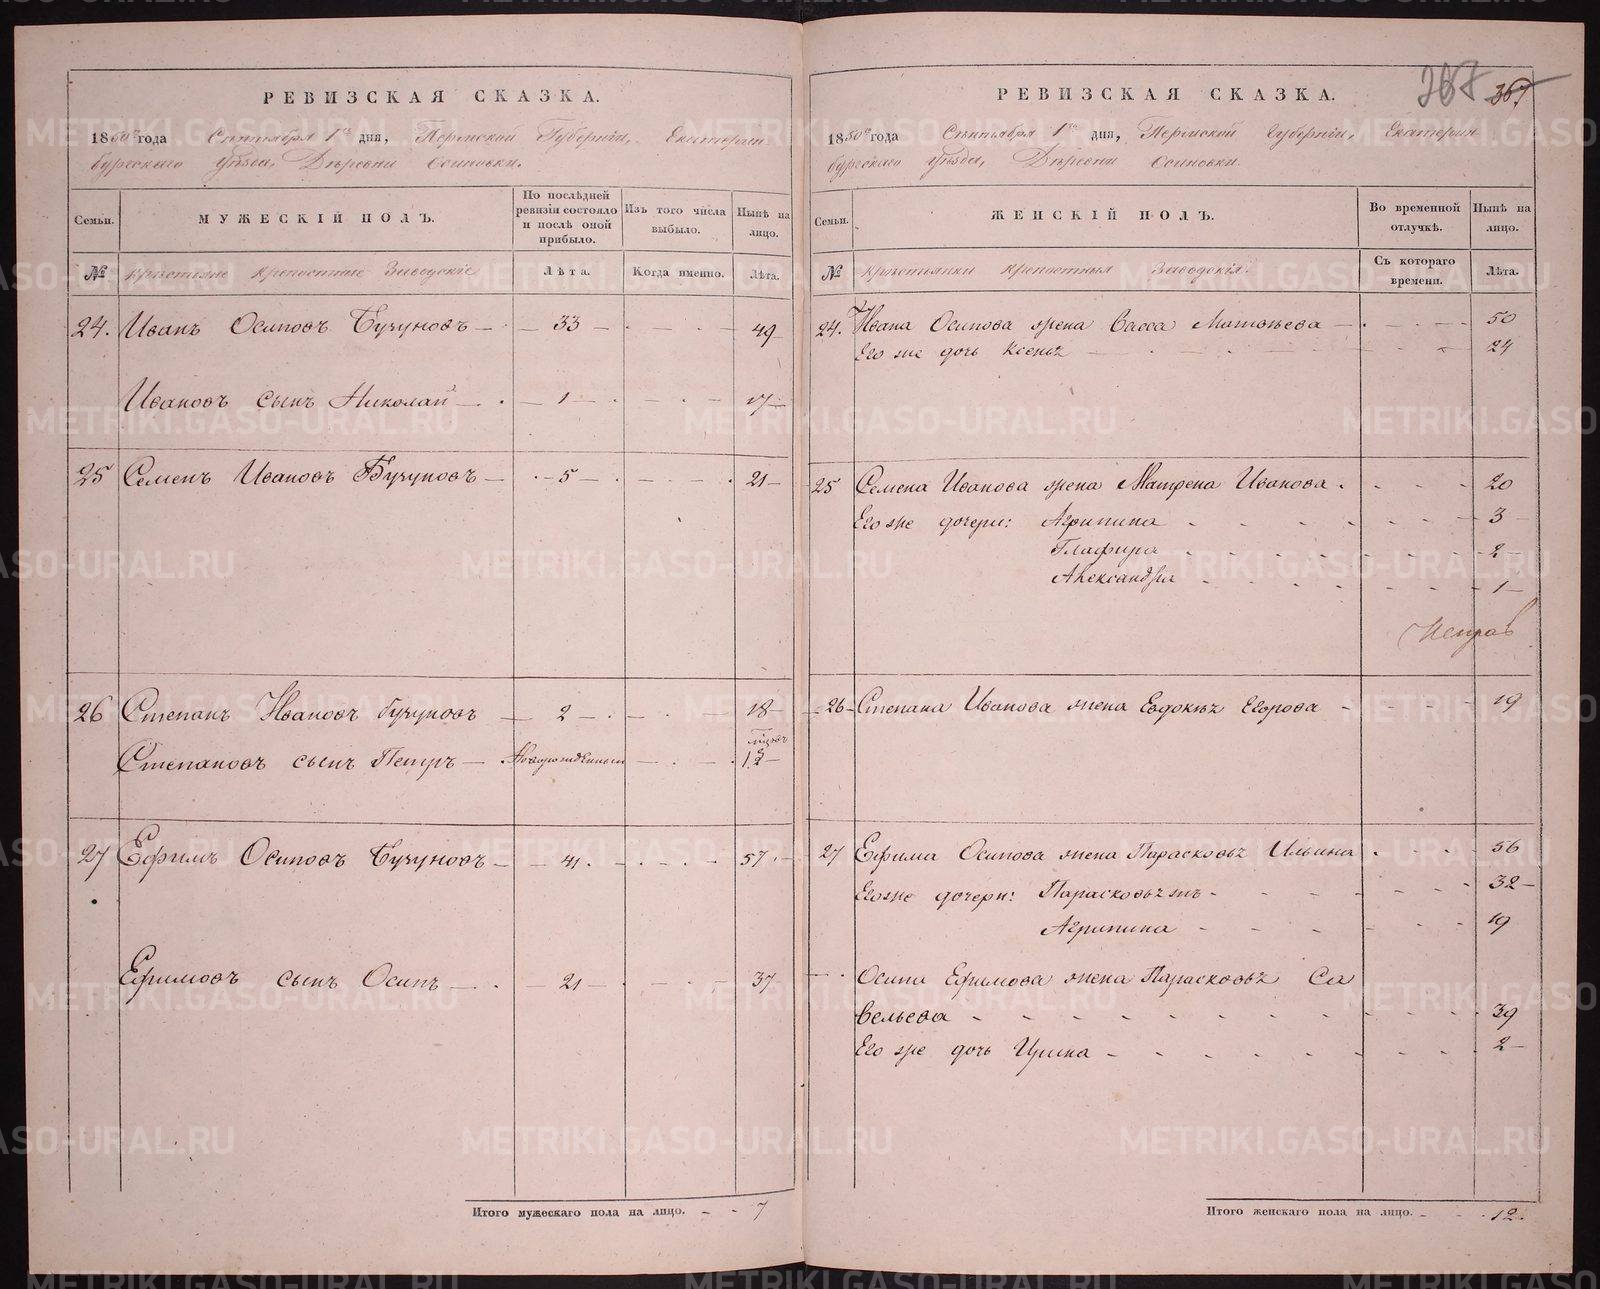 РЕВИЗСКАЯ СКАЗКА.
1850го года Сентября 1го дня, Пермской Губернiи, Екатерин
бургскаго Уѣзда, Деревни Осиновки.
Семьи.
МУЖЕСКIЙ ПОЛЪ.
По послѣдней ревизiи состояло и послѣ оной прибыло.
Изъ того числа выбыло.
Нынѣ на лицо.
№
крестьяне крепостные Заводскiе
Лѣта.
Когда именно.
Лѣта.
24. Иванъ Осиповъ Бучуновъ — 33 — 49
Ивановъ сынъ Николай — 1 — 17
25 Семенъ Ивановъ Бучуновъ — 5 — 21
26 Степанъ Ивановъ Бучуновъ — 2 — 18
Степановъ сынъ Петръ — Новорожденный —
27 Ефимъ Осиповъ Бучуновъ — 41 — 57
Ефимовъ сынъ Осипъ — 21 — 37
Итого мужескаго пола на лицо. 7
367 367
РЕВИЗСКАЯ СКАЗКА.
1850го года Сентября 1го дня, Пермской Губернiи, Екатерин
бургскаго Уѣзда, Деревни Осиновки.
Семьи.
ЖЕНСКIЙ ПОЛЪ.
Во временной отлучкѣ.
Нынѣ на лицо.
№
крестьянки крепостныя Заводскiя.
Съ котораго времени.
Лѣта.
24. Ивана Осипова жена Васса Матвеева — 50
Его же дочь Ксенья — 24
25 Семена Иванова жена Матрена Иванова 20
Его же дочери: Агрипина 3
Глафира 2
Александра 1
26 Степана Иванова жена Евдокѣя Егорова 19
27 Ефима Осипова жена Парасковья Ильина 56
Его же дочери: Парасковья жъ 32
Агрипина 19
Осипа Ефимова жена Парасковья Са
вельева 39
Его же дочь Ирина 2
Итого женскаго пола на лицо. 12.
METRIKI.GASO-URAL.RU